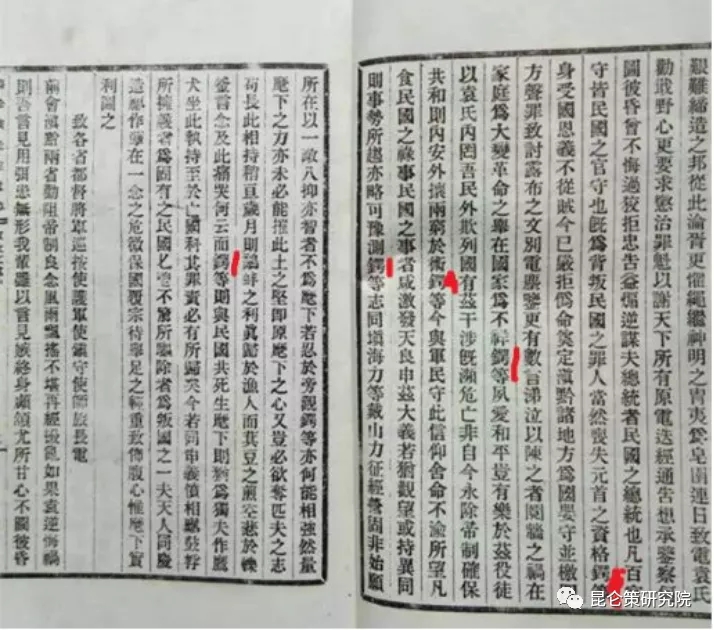 艱難締造之邦從此淪胥更懼繩繼神明之胄夷爲皂圉連日致電袁氏
勸戢野心更要求懲治罪魁以謝天下所有原電迭經通告想承鑒察
圖彼昏曾不悔過狡拒忠告益煽逆謀夫總統者民國之總統也凡百
守皆民國之官守也既爲背叛民國之罪人當然喪失元首之資格鍔等
身受國恩義不從賊今已嚴拒僞命奠定滇黔諸地方爲國嬰守並檄四
方聲罪致討露布之文別電塵鑒更有數言涕泣以陳之者鬩牆之禍在
家庭爲大變革命之舉在國家爲不祥鍔等夙愛和平豈有樂於茲役徒
以袁氏内罔吾民外欺列國有茲干涉既瀕危亡非自今永除帝制確保
共和則內安外攘兩窮於術鍔等今與軍民守此信仰舍命不渝所望凡
食民國之祿事民國之事者咸激發天良申茲大義若猶觀望或持異同
則事勢所趨亦略可豫測鍔等志同填海力等戴山力征經營固非始願
所在以一敵八抑亦智者不爲麾下若忍於旁觀鍔等亦何能相強然量
麾下之力亦未必能摧此土之堅即原麾下之心又豈必欲奪匹夫之志
苟長此相持稍亘歲月則鷸蚌之利眞歸於漁人而萁豆之煎空悲於轢
釜言念及此痛哭何云而鍔等則與民國共死生麾下則猶爲獨夫作鷹
犬坐此執持至於亡國科其罪責必有所歸矣今若同申義憤相應桴鼓
所擁護者爲固有之民國匕鬯不驚所驅除者爲叛國之一夫天人同慶
造福作孽在一念之危微保國覆宗待舉足之輕重致佈腹心惟麾下實
利圖之
致各省都督將軍巡按使護軍使鎮守使師旅長電
前會滇黔兩省勸阻帝制良念風雨飄搖不堪再經擾亂如果袁逆悔禍
則吾言見用弭患無形我輩雖以言見嫉終身廢錮尤所甘心不圖彼昏
昆仑策研究院